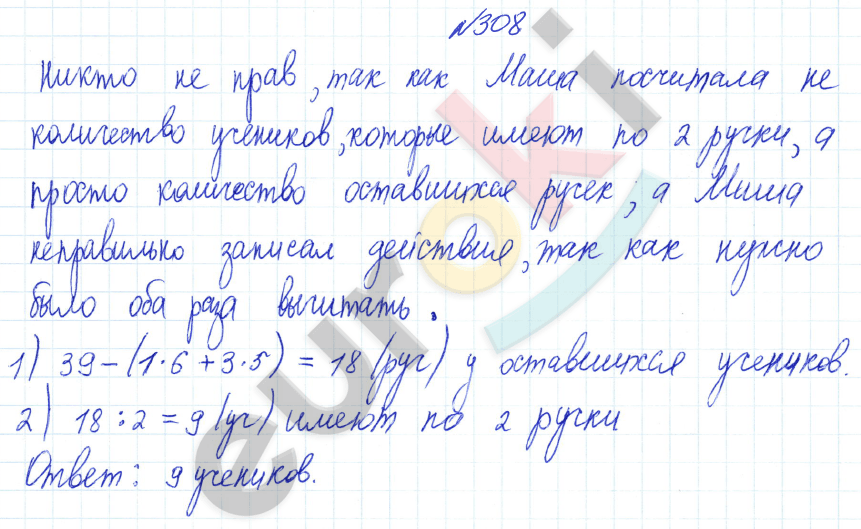 №308
Никто не прав, так как Маша посчитала не
количество учеников, которые имеют по 2 ручки, а
просто количество оставшихся ручек, а Миша
неправильно записал действия, так как нужно
было оба раза вычитать.
1) 39-(1·6+3·5)=18 (руч) у оставшихся учеников.
2) 18:2=9 (уч) имеют по 2 ручки
Ответ: 9 учеников.
euroki